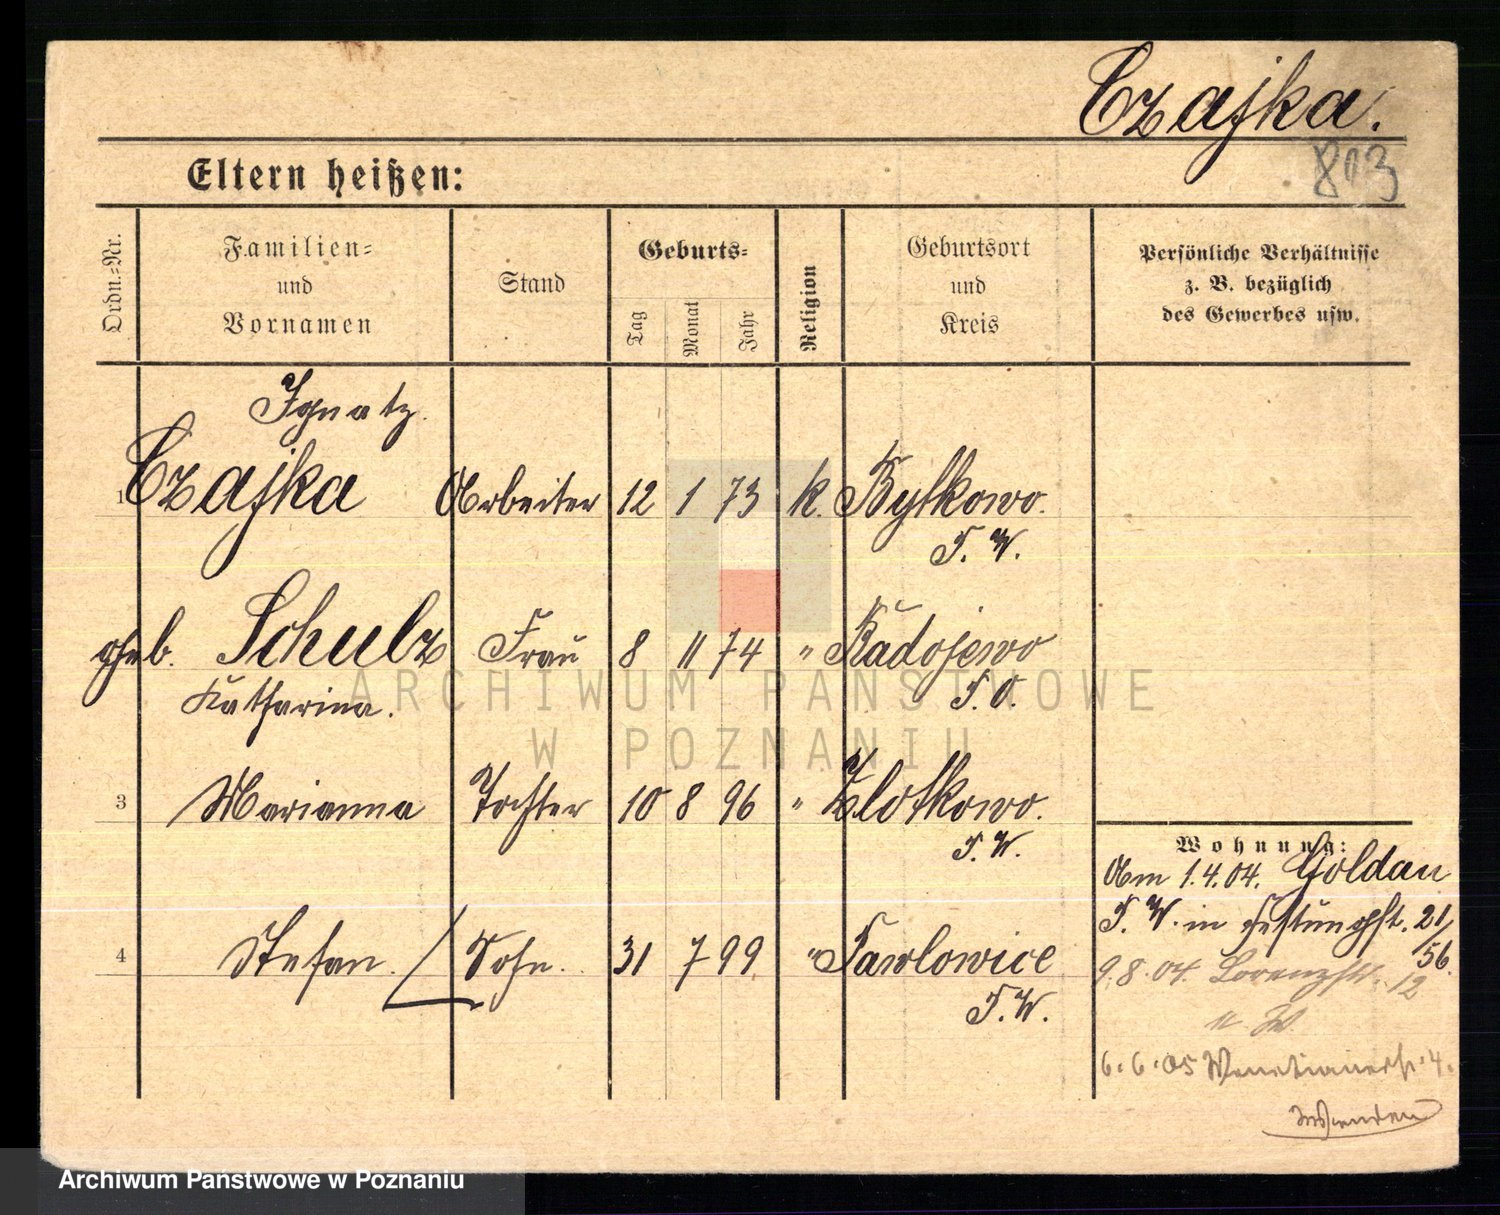 Czajka.
803
Eltern heißen:
Ordn.-Nr.
Familien-
und
Vornamen
Stand
Geburts-
Tag
Monat
Jahr
Religion
Geburtsort
und
Kreis
Persönliche Verhältnisse
z. B. bezüglich
des Gewerbes usw.
Ignatz
1 Czajka Arbeiter 12 1 73 k. Bytkowo.
P. W.
geb. Schulz Frau 8 11 74 " Radojewo
Katharina. P. O.
3 Marianna Tochter 10 8 96 " Zlotkowo.
P. W.
4 Stefan. Sohn. 31 7 99 " Pawlowice
P. W.
Wohnung:
Am 1.4.04. Goldau
P. W. in Festungsst. 21/
56.
9.8.04. Lorenzstr. 12
6.6.05 Venetianerstr. 4.
ARCHIWUM PAŃSTWOWE
W POZNANIU
Archiwum Państwowe w Poznaniu